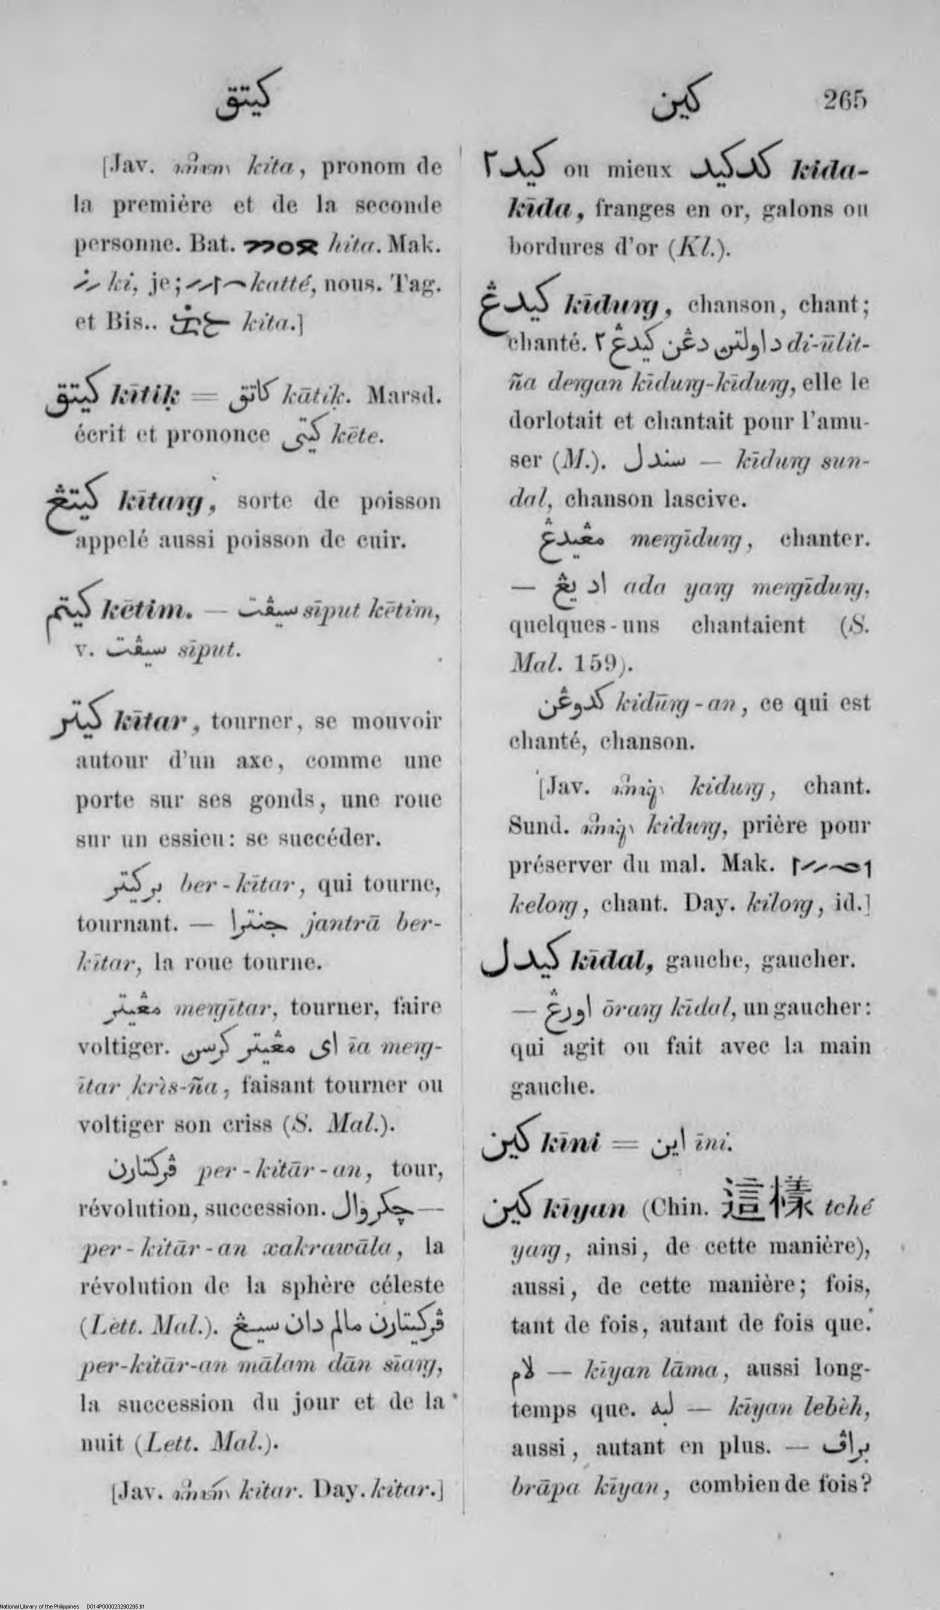 كيتق
كين 265
[Jav. kita, pronom de
la première et de la seconde
personne. Bat. hita. Mak.
ki, je; katté, nous. Tag.
et Bis.. kita.]
كيتق kītiḳ = كاتق kātiḳ. Marsd.
écrit et prononce كيتي kēte.
كيتڠ kītaṅg, sorte de poisson
appelé aussi poisson de cuir.
كيتم kētim. — سيڤت sīput kētim,
v. سيڤت sīput.
كيتر kītar, tourner, se mouvoir
autour d'un axe, comme une
porte sur ses gonds, une roue
sur un essieu: se succéder.
بركيتر ber-kītar, qui tourne,
tournant. — جنترا jantrā ber-
kītar, la roue tourne.
مڠيتر meṅgītar, tourner, faire
voltiger. اي مڠيتر كرسن īa meṅg-
ītar krìs-ña, faisant tourner ou
voltiger son criss (S. Mal.).
ڤركتارن per-kitār-an, tour,
révolution, succession. چكروال —
per-kitār-an xakrawāla, la
révolution de la sphère céleste
(Lett. Mal.). ڤركيتارن مالم دان سيڠ
per-kitār-an mālam dān sīaṅg,
la succession du jour et de la
nuit (Lett. Mal.).
[Jav. kitar. Day. kitar.]
كيد٢ ou mieux كدكيد kida-
kīda, franges en or, galons ou
bordures d'or (Kl.).
كيدڠ kīduṅg, chanson, chant;
chanté. داولتن دڠن كيدڠ٢ di-ūlit-
ña deṅgan kīduṅg-kīduṅg, elle le
dorlotait et chantait pour l'amu-
ser (M.). سندل — kīduṅg sun-
dal, chanson lascive.
مڠيدڠ meṅgīduṅg, chanter.
— اد يڠ ada yaṅg meṅgīduṅg,
quelques-uns chantaient (S.
Mal. 159).
كدوڠن kidūṅg-an, ce qui est
chanté, chanson.
[Jav. kiduṅg, chant.
Sund. kiduṅg, prière pour
préserver du mal. Mak.
keloṅg, chant. Day. kiloṅg, id.]
كيدل kīdal, gauche, gaucher.
— اورڠ ōraṅg kīdal, un gaucher:
qui agit ou fait avec la main
gauche.
كين kīni = اين īni.
كين kīyan (Chin. 這樣 tché
yaṅg, ainsi, de cette manière),
aussi, de cette manière; fois,
tant de fois, autant de fois que.
لام — kīyan lāma, aussi long-
temps que. لبه — kīyan lebèh,
aussi, autant en plus. — براڤ
brāpa kīyan, combien de fois?
National Library of the Philippines